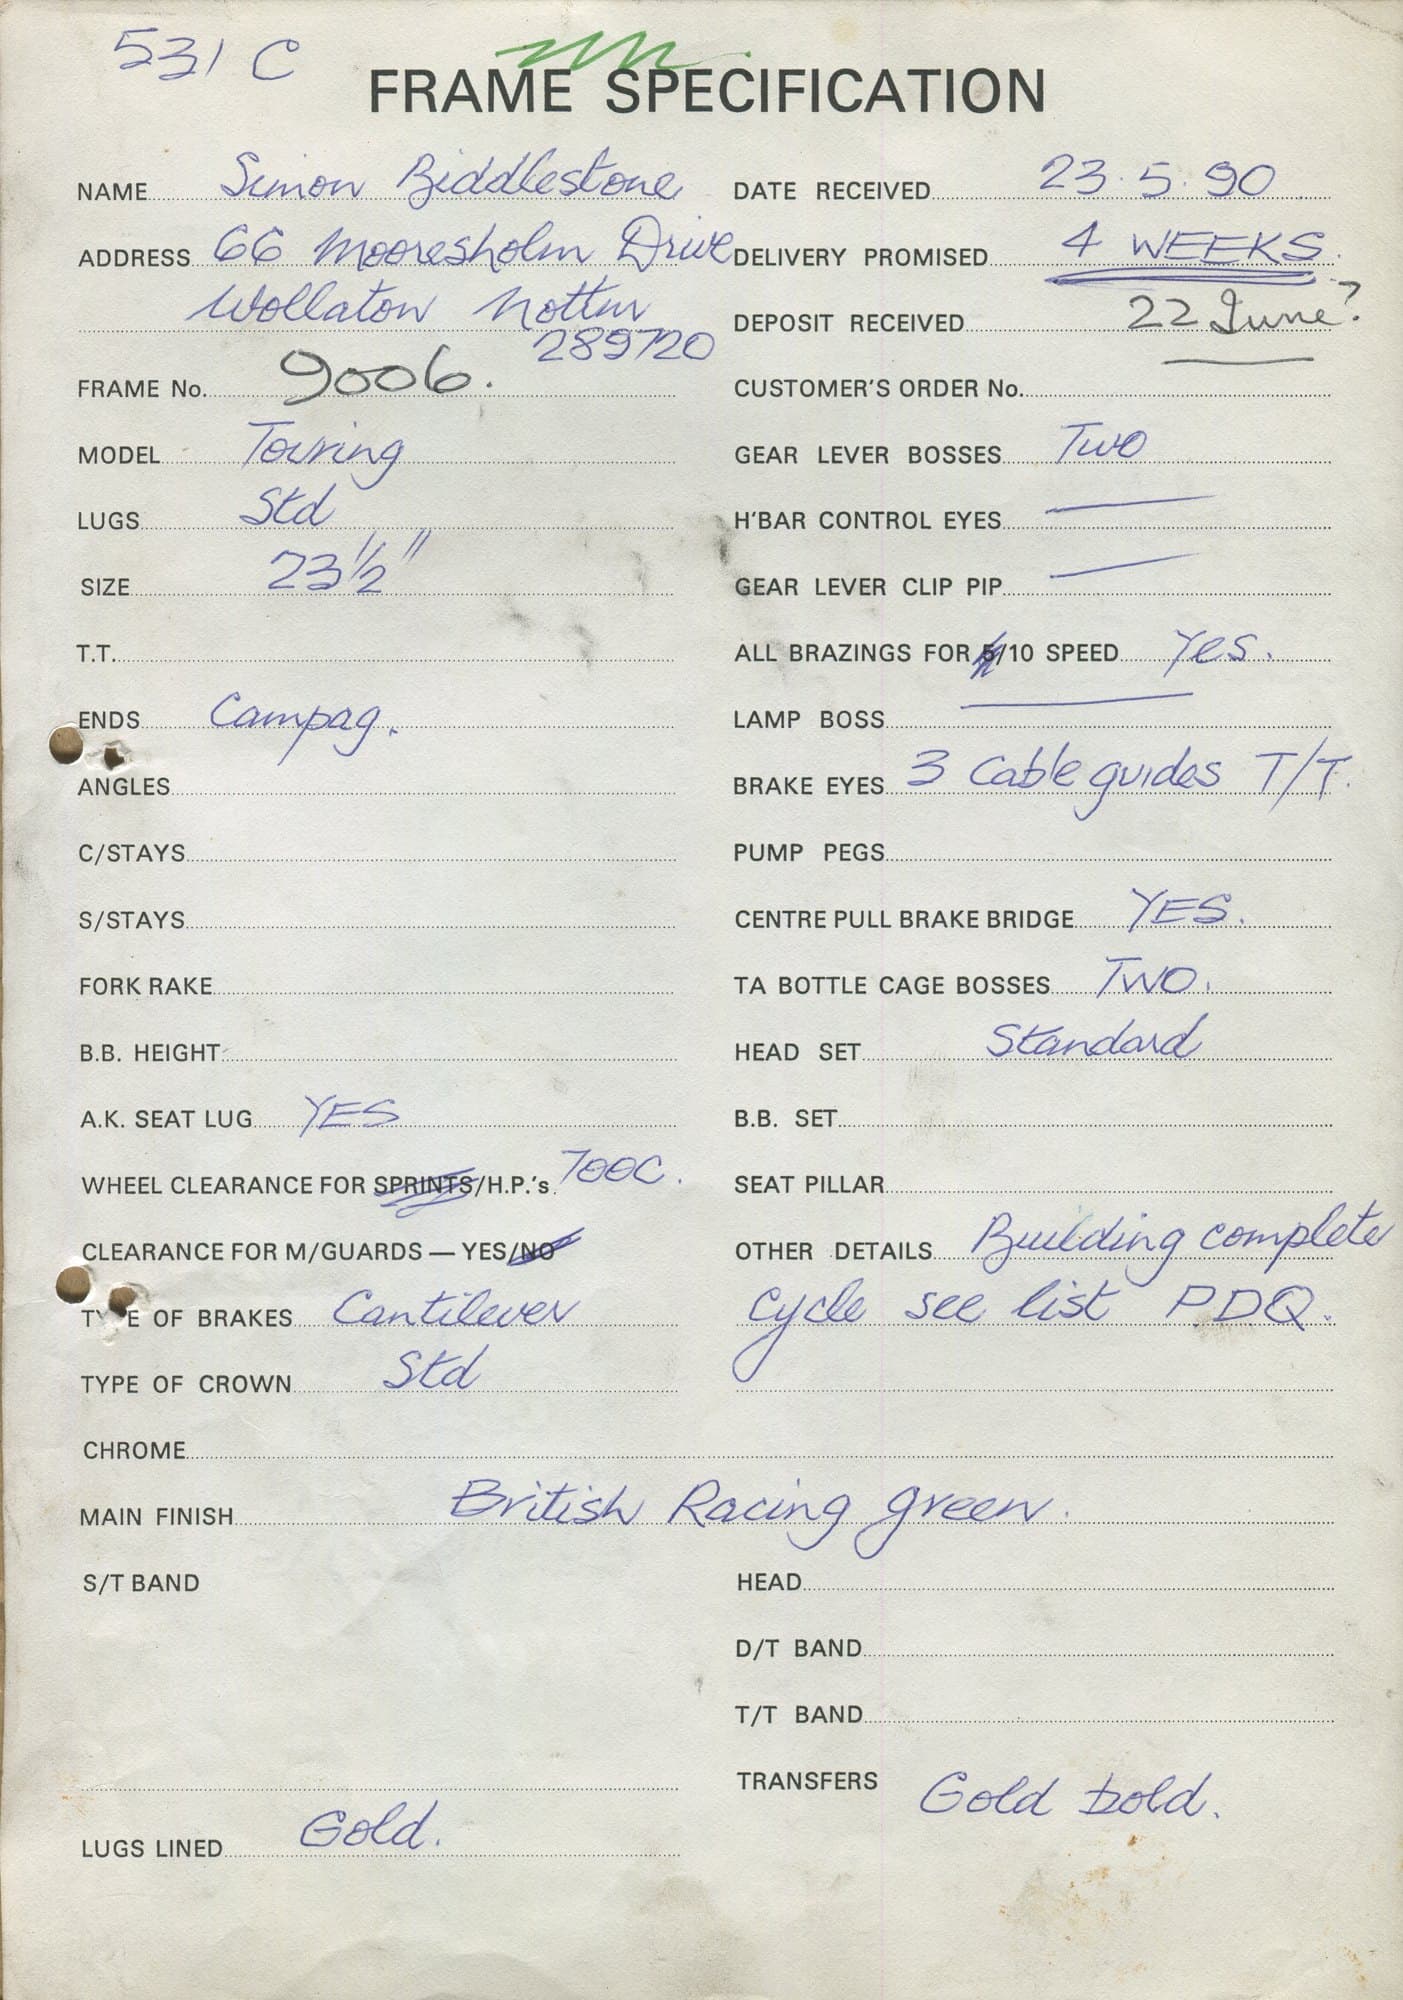 531 C
FRAME SPECIFICATION
NAME Simon Biddlestone
ADDRESS 66 Mooresholm Drive
Wollaton Nottm
289720
FRAME No. 9006.
MODEL Touring
LUGS Std
SIZE 23 1/2"
T.T.
ENDS Campag.
ANGLES
C/STAYS
S/STAYS
FORK RAKE
B.B. HEIGHT
A.K. SEAT LUG YES
WHEEL CLEARANCE FOR SPRINTS/H.P.'s 700C.
CLEARANCE FOR M/GUARDS — YES/NO
TYPE OF BRAKES Cantilever
TYPE OF CROWN Std
DATE RECEIVED 23.5.90
DELIVERY PROMISED 4 WEEKS.
DEPOSIT RECEIVED 22 June?
CUSTOMER'S ORDER No.
GEAR LEVER BOSSES Two
H'BAR CONTROL EYES —
GEAR LEVER CLIP PIP —
ALL BRAZINGS FOR 5/10 SPEED Yes.
LAMP BOSS —
BRAKE EYES 3 Cable guides T/T.
PUMP PEGS
CENTRE PULL BRAKE BRIDGE YES.
TA BOTTLE CAGE BOSSES TWO.
HEAD SET Standard
B.B. SET
SEAT PILLAR
OTHER DETAILS Building complete
cycle see list PDQ.
CHROME
MAIN FINISH British Racing green.
S/T BAND
HEAD
D/T BAND
T/T BAND
TRANSFERS Gold bold.
LUGS LINED Gold.